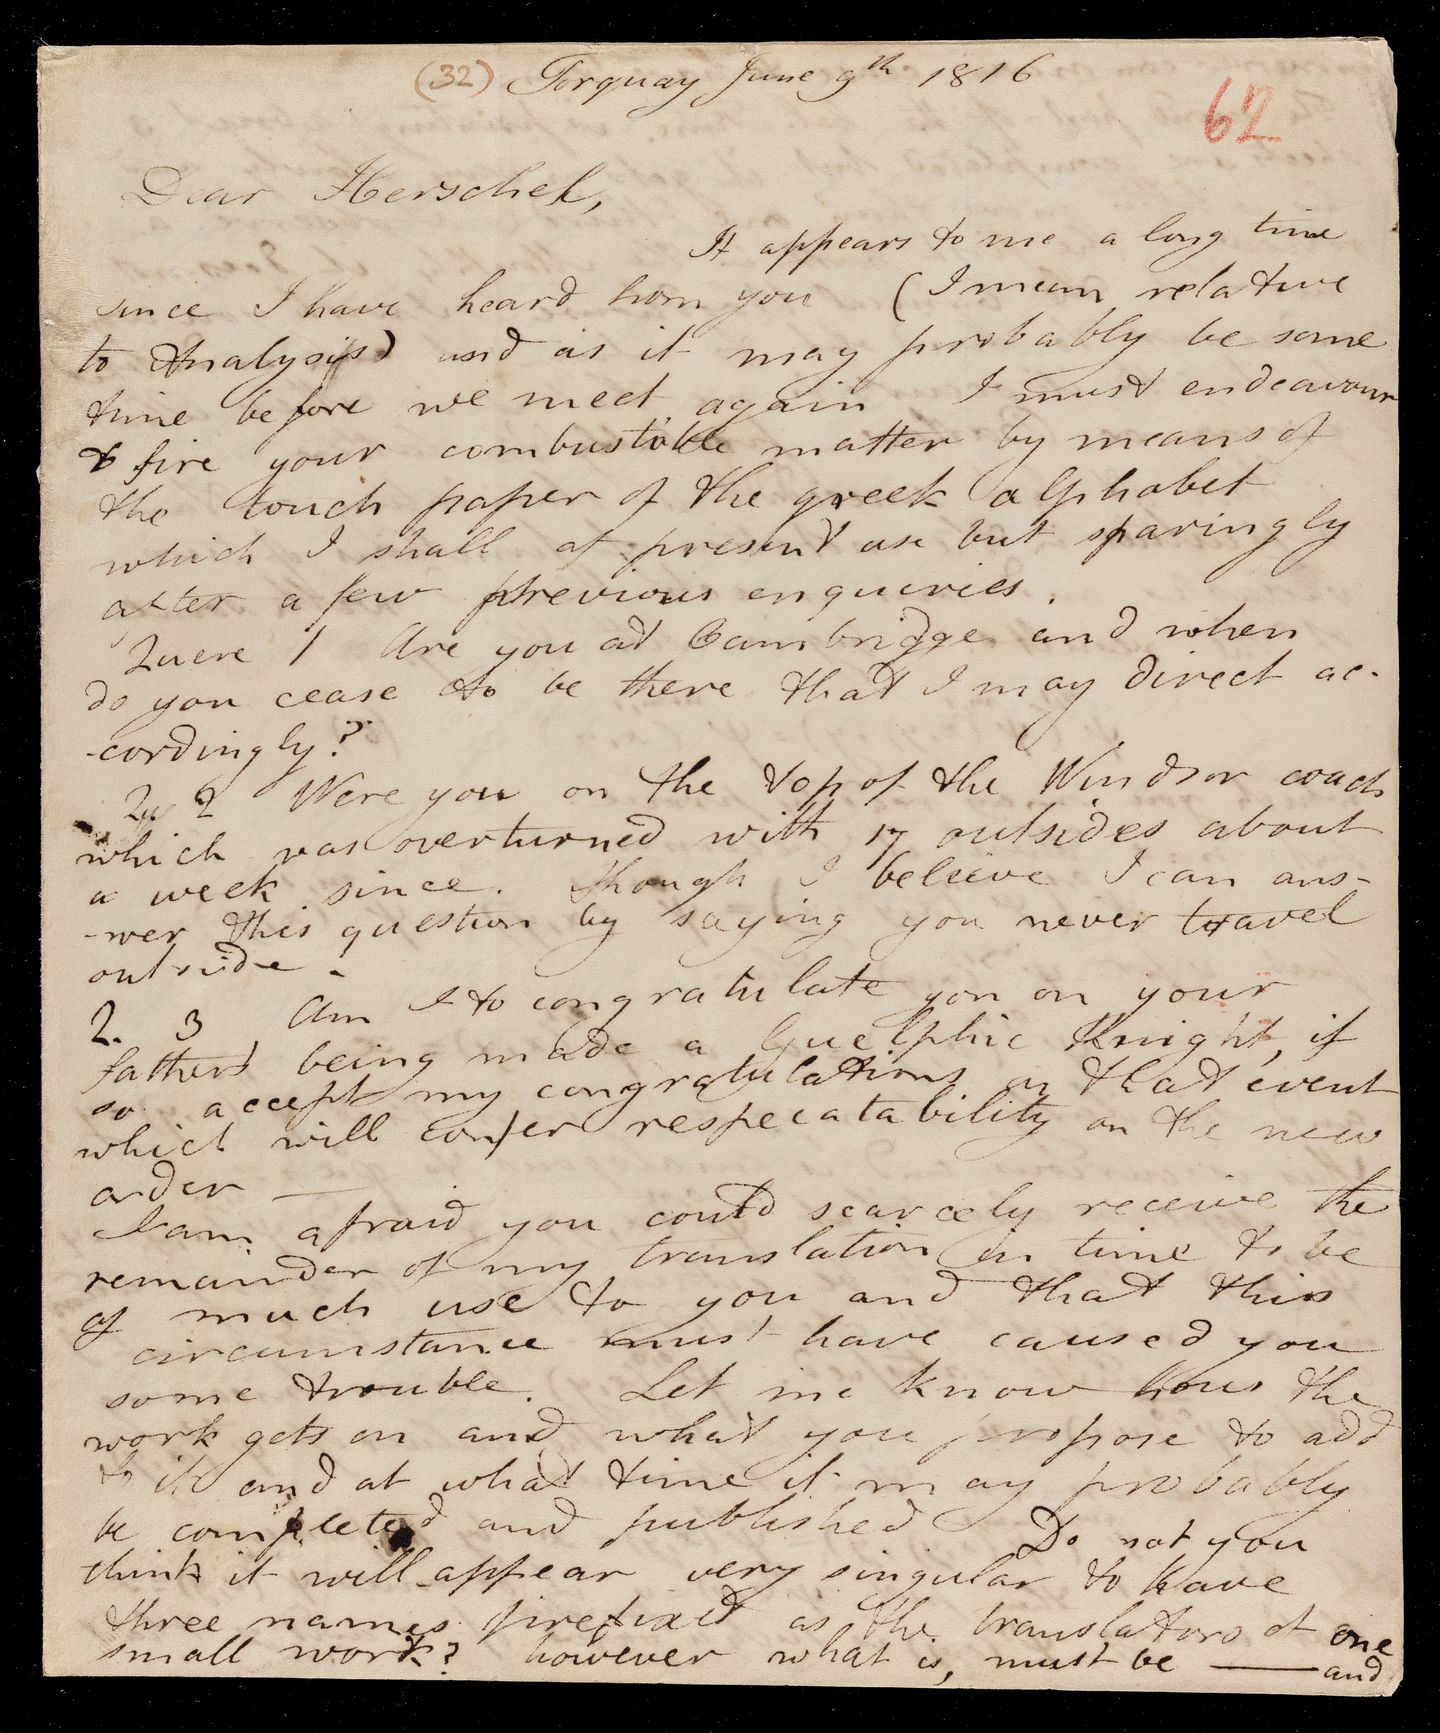 (32) Torquay June 9th 1816
62
Dear Herschel,
It appears to me a long time
since I have heard from you (I mean relative
to Analysis) and as it may probably be some
time before we meet again I must endeavour
to fire your combustible matter by means of
the touch paper of the greek alphabet
which I shall at present use but sparingly
after a few previous enquiries.
Quere 1 Are you at Cambridge and when
do you cease to be there that I may direct ac-
-cordingly?
Qu 2 Were you on the top of the Windsor coach
which was overturned with 17 outsides about
a week since. Though I believe I can ans-
-wer this question by saying you never travel
outside.
2. 3 Am I to congratulate you on your
fathers being made a Guelphic Knight, if
so accept my congratulations on that event
which will confer respecatability on the new
order —
I am afraid you could scarcely receive the
remainder of my translation in time to be
of much use to you and that this
circumstance must have caused you
some trouble. Let me know how the
work gets on and what you propose to add
to it and at what time it may probably
be completed and published Do not you
think it will appear very singular to have
three names prefixed as the translators of one
small work? however what is, must be — and